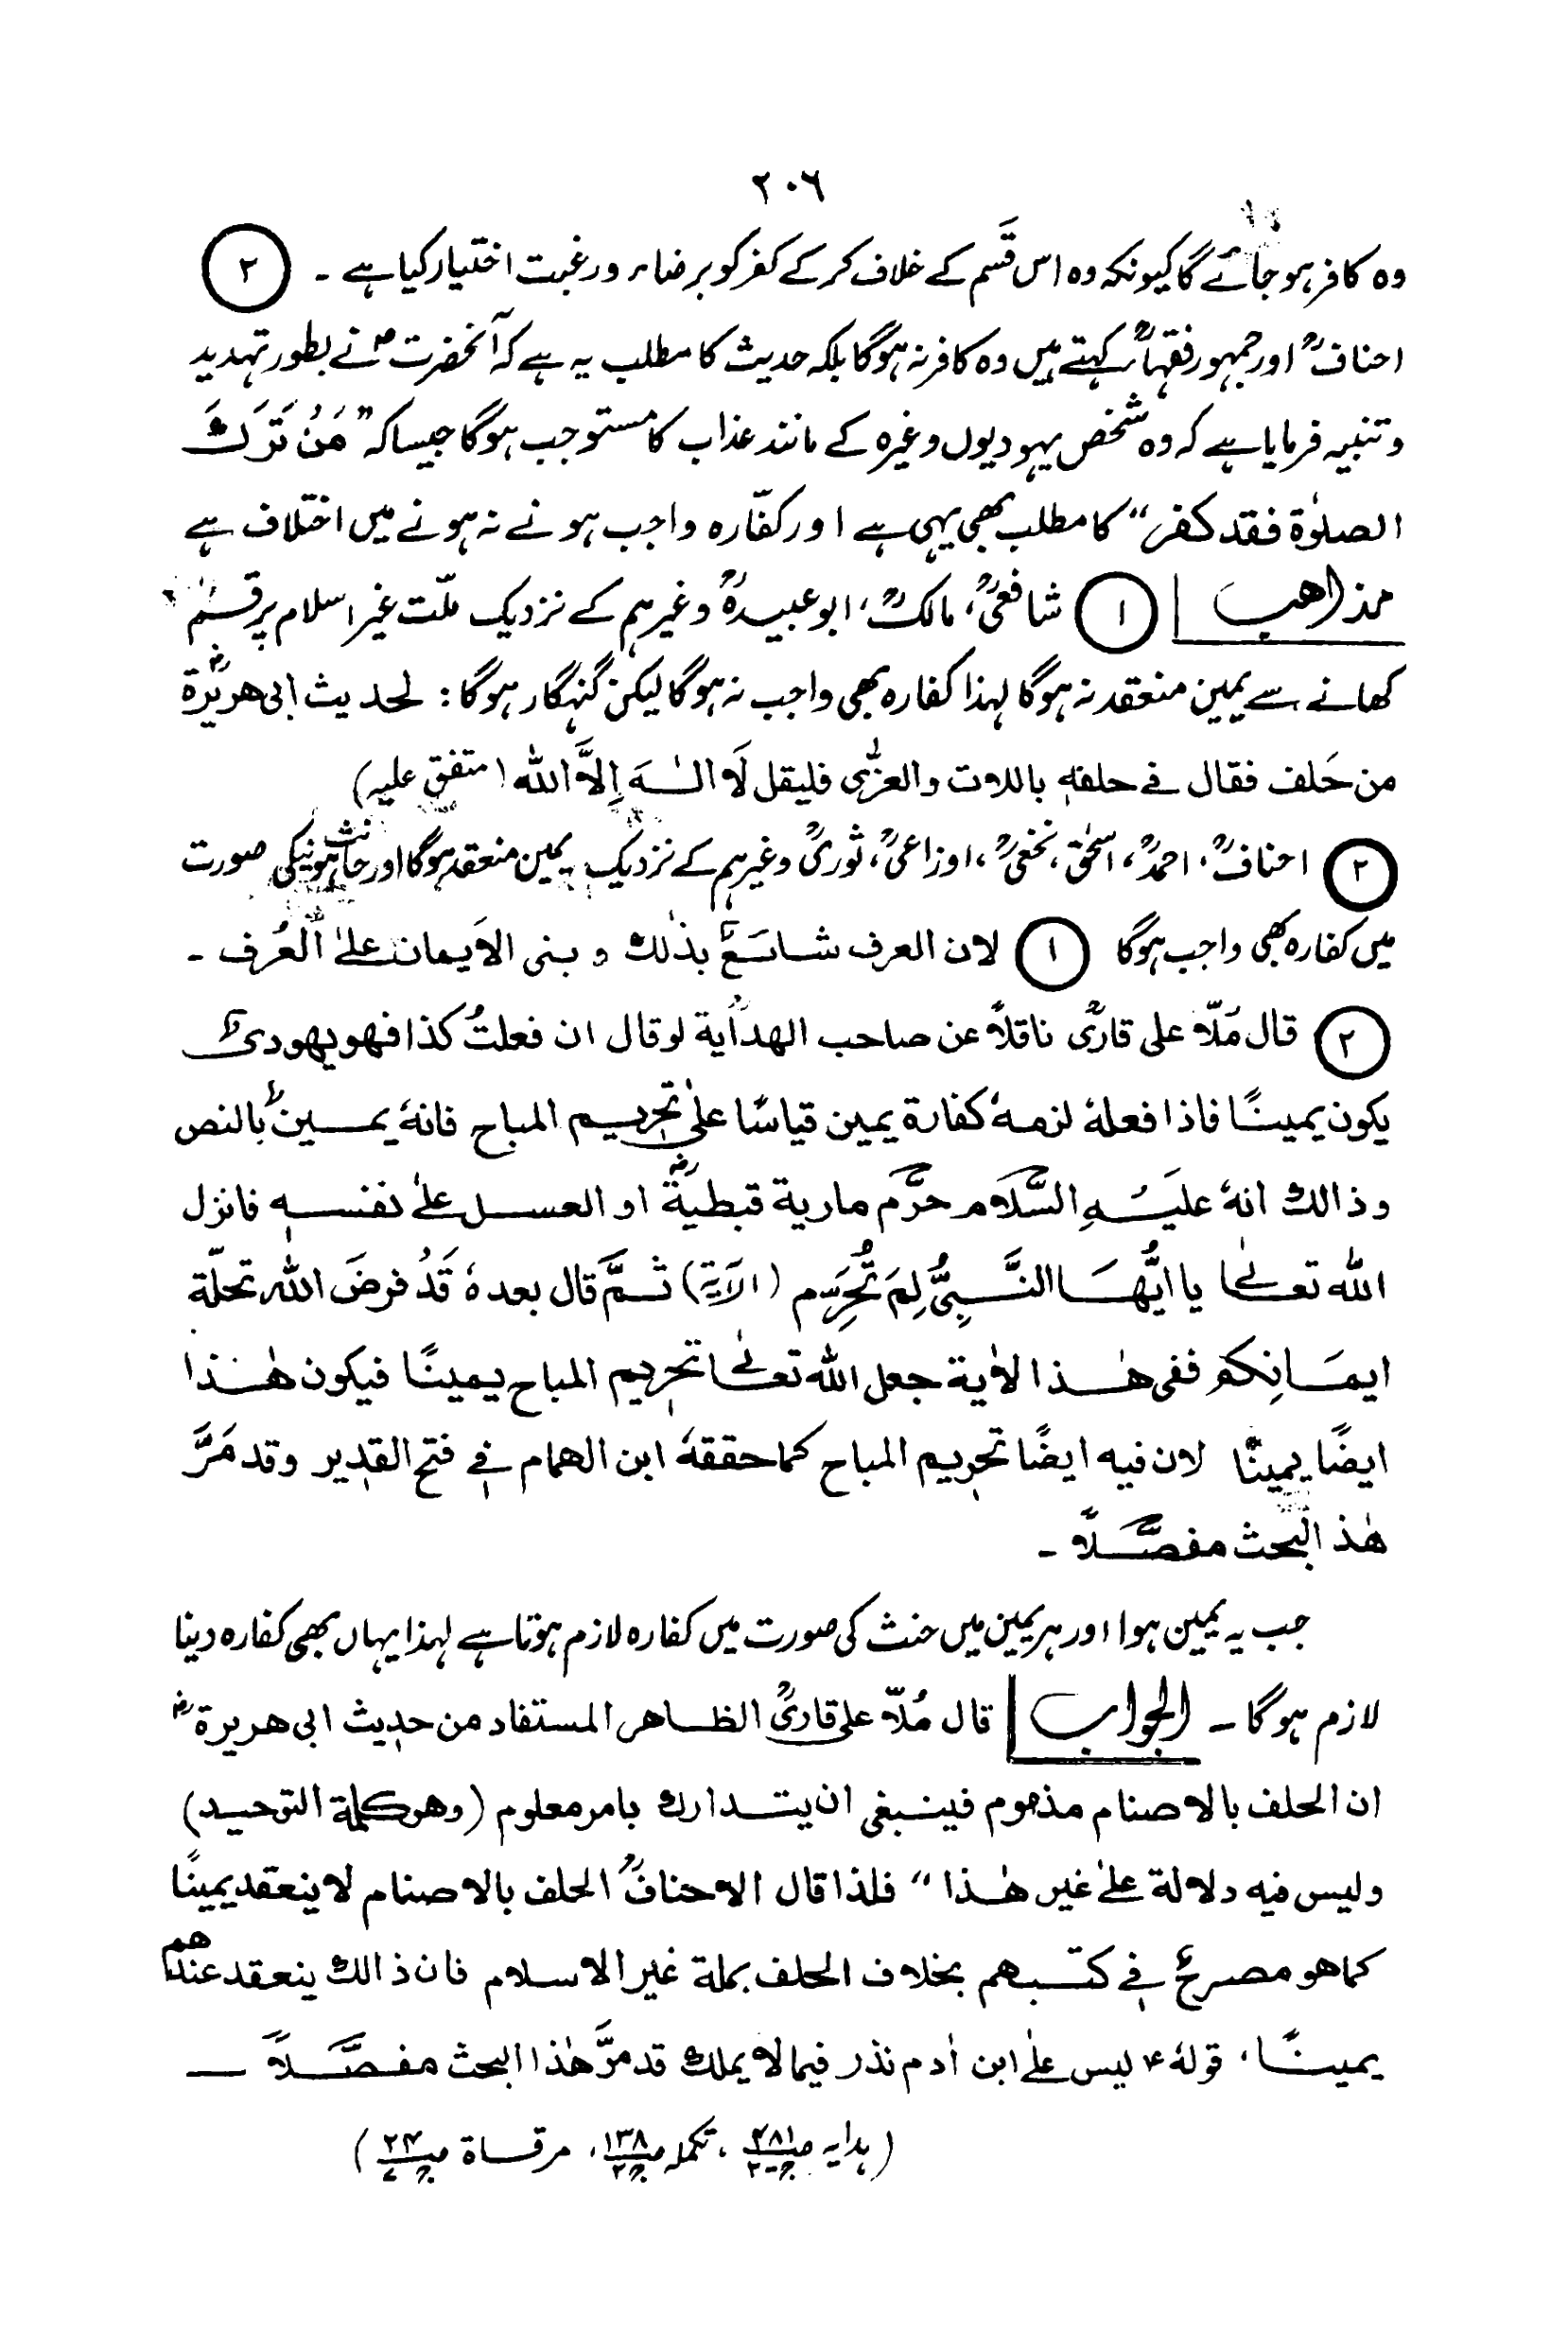 ۲۰۶
وہ کافر ہو جائے گا کیونکہ وہ اس قسم کے خلاف کر کے کفر کو برضاء ورغبت اختیار کیا ہے ۔ ②
احنافؒ اور جمہور فقہاءؒ کہتے ہیں وہ کافر نہ ہوگا بلکہ حدیث کا مطلب یہ ہے کہ آنحضرتؐ نے بطور تہدید
وتنبیہ فرمایا ہے کہ وہ شخص یہودیوں وغیرہ کے مانند عذاب کا مستوجب ہوگا جیسا کہ ”مَنْ تَرَكَ
الصلوٰة فقد كفر“ کا مطلب بھی یہی ہے اور کفّارہ واجب ہونے نہ ہونے میں اختلاف ہے
مذاهب ① شافعیؒ، مالکؒ، ابوعبیدہؒ وغیرہم کے نزدیک ملّت غیر اسلام پر قسم
کھانے سے یمین منعقد نہ ہوگا لہذا کفارہ بھی واجب نہ ہوگا لیکن گنہگار ہوگا : لحدیث ابی ھریرۃؓ
من حَلف فقال في حلفهٖ باللات والعزّٰی فليقل لَا الٰـهَ اِلَّا الله (متفق علیہ)
② احنافؒ، احمدؒ، اسحٰقؒ، نخعیؒ، اوزاعیؒ، ثوریؒ وغیرہم کے نزدیک یمین منعقد ہوگا اور حانث ہونیکی صورت
میں کفارہ بھی واجب ہوگا ① لان العرف شائعٌ بذٰلك و بنى الايمان علىٰ العُرف ۔
② قال مَلّا على قارىؒ ناقلاً عن صاحب الهدايةؒ لوقال ان فعلتُ كذا فهو يهودىٌ
يكون يمينًا فاذا فعلهٗ لزمهٗ كفارة يمين قياسًا علىٰ تحريم المباح فانهٗ يمينٌ بالنص
وذالك انهٗ عليهِ السَّلَام حرَّم مارية قبطيةؓ او العسل علىٰ نفسهٖ فانزل
الله تعالىٰ يا ايُّهَا النَّبِىُّ لِمَ تُحَرِّم (الآية) ثمَّ قال بعدهٗ قَدْ فرضَ الله تحلّة
ايمَانِكم ففى هٰذا الاٰية جعل الله تعالىٰ تحريم المباح يمينًا فيكون هٰذا
ايضًا يمينًا لان فيه ايضًا تحريم المباح كما حققهٗ ابن الهمام في فتح القدير وقد مَرَّ
هٰذ البحث مفصَّلاً ۔
جب یہ یمین ہوا اور ہر یمین میں حنث کی صورت میں کفارہ لازم ہوتا ہے لہذا یہاں بھی کفارہ دینا
لازم ہوگا ۔ الجواب قال مُلّا على قارىؒ الظاهر المستفاد من حديث ابى هريرةؓ
ان الحلف بالاصنام مذموم فينبغى ان يتدارك بامر معلوم (وهو كلمة التوحيد)
وليس فيه دلالة علىٰ غير هٰذا “ فلذا قال الاحنافؒ الحلف بالاصنام لا ينعقد يمينًا
كما هو مصرحٌ في كتبهم بخلاف الحلف بملة غير الاسلام فان ذالك ينعقد عندهم
يمينًا ، قولهٗ ؑ ليس علىٰ ابن اٰدم نذر فيما لا يملك قد مَرَّ هٰذا البحث مفصَّلاً —
(ہدایہ ص۴۸۱ ج۲، تکملہ ص۱۳۸ ج۲، مرقاة ص۲۴ ج۷)